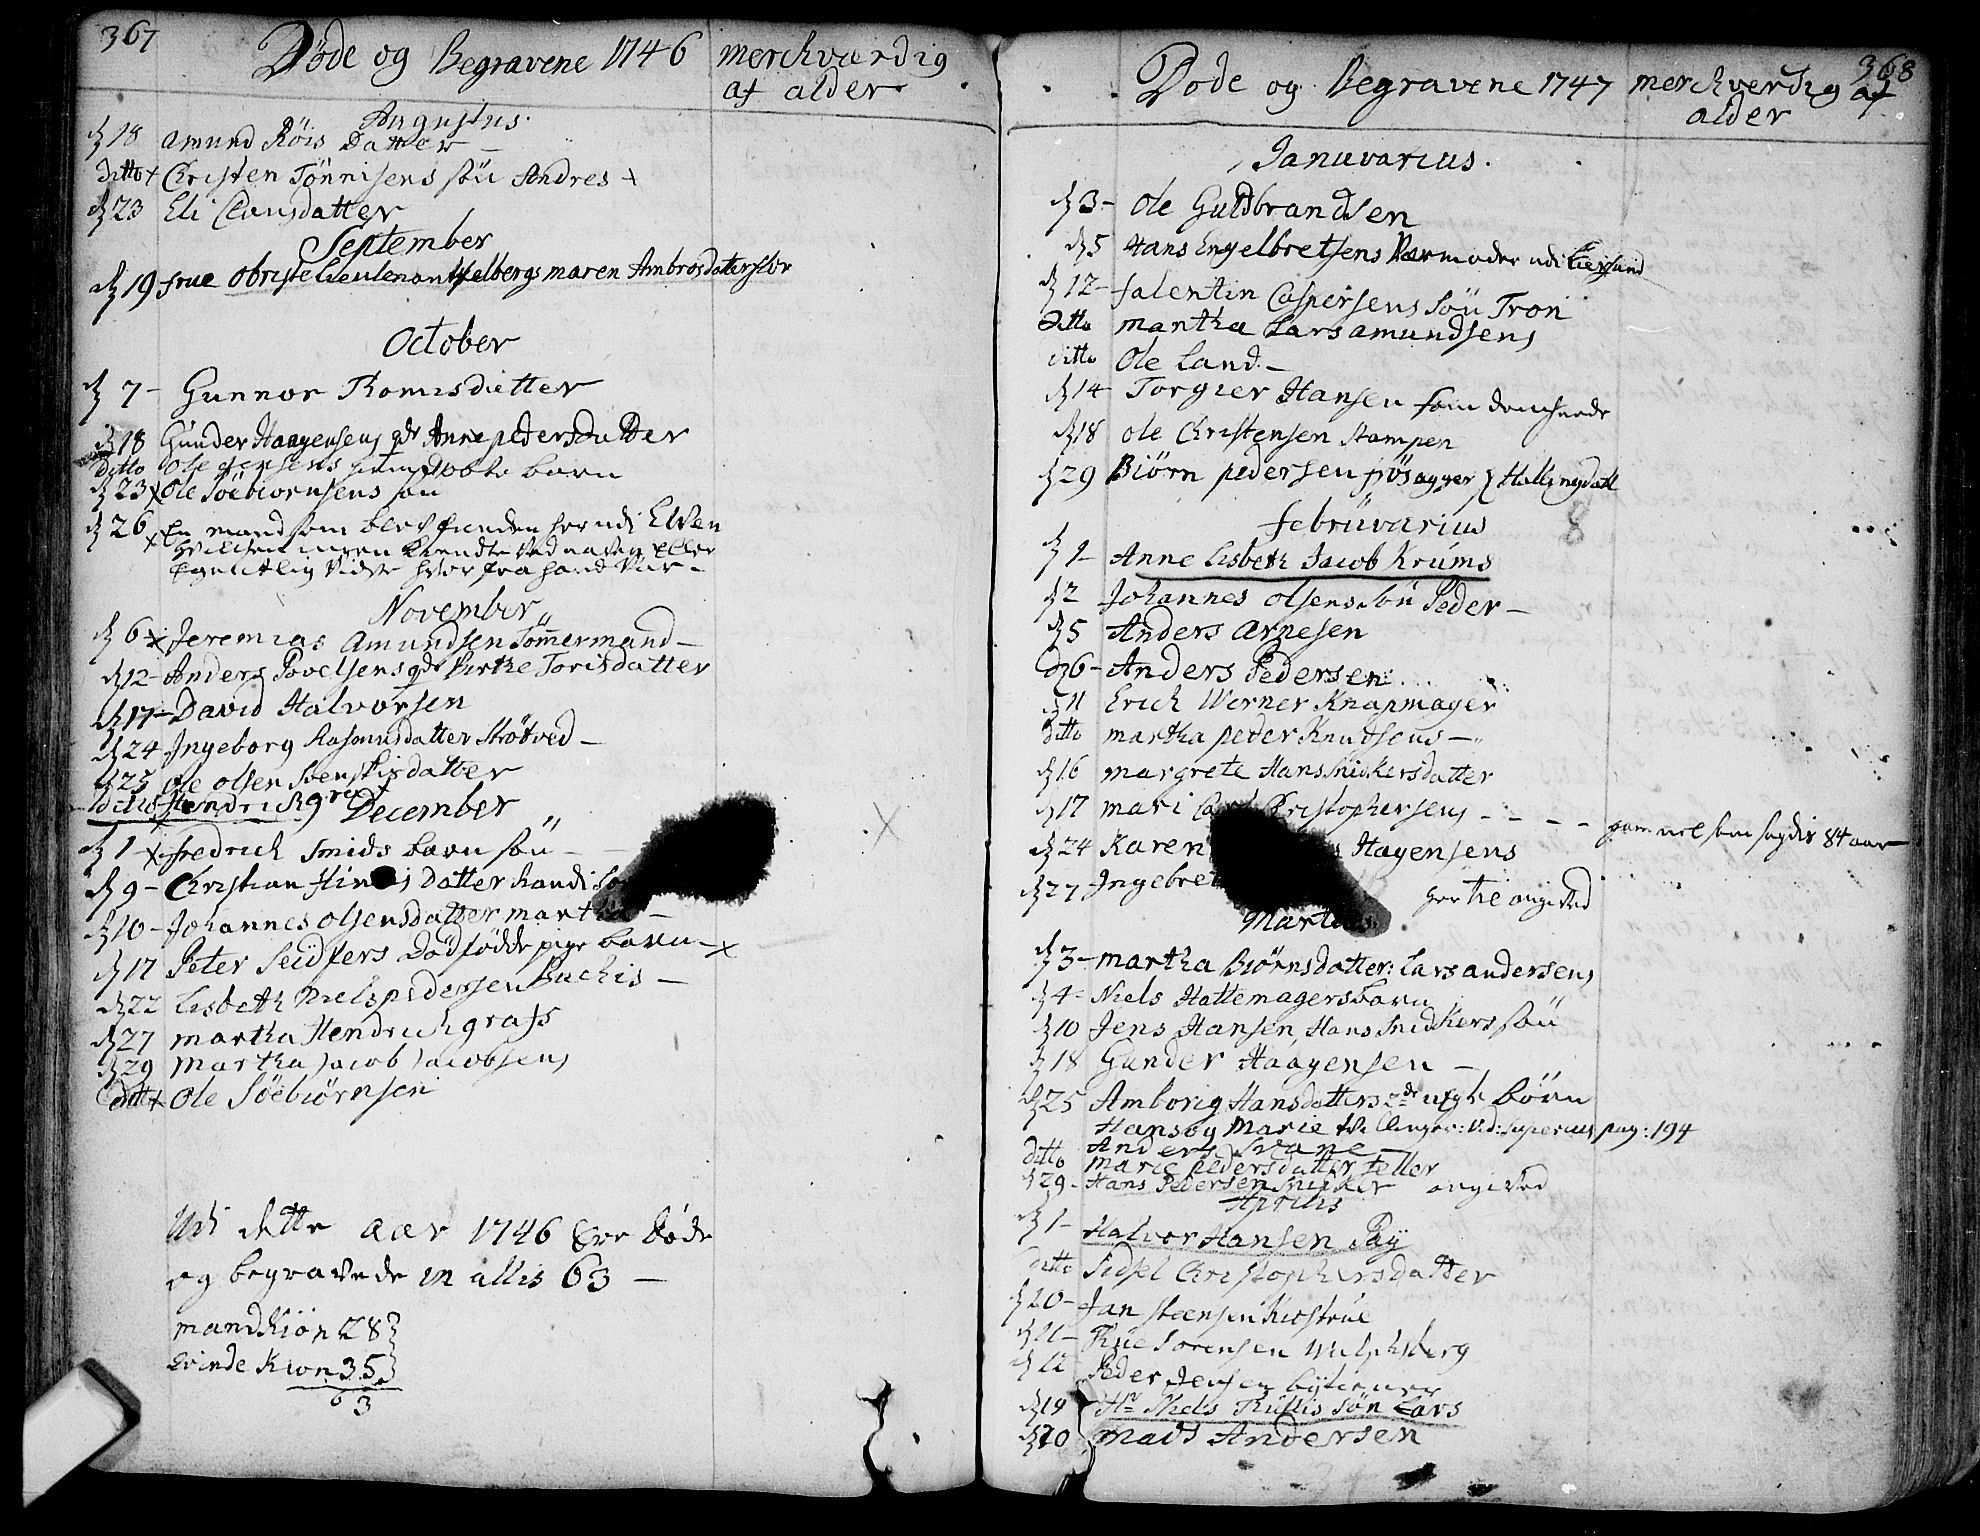 367
Døde og Begravene 1746 merckvardig
af alder
Augustus.
d 18 amund Röis Datter
ditto + Christen Tönnisens sön Andres +
d 23 Eli Clausdatter
September
d 19 frue Obriste Lieutenant maren Ambrosdatter
October
d 7 - Gunnor Thomisdatter
d 18 Gunder Haagensens Anne pedersdatter
ditto Ole Jensens barn
d 23 x Ole Söebiörnsens sön
d 26 x En mand som blef funden her udi Elven
hvilchen ingen kiendte ved navn Eller
Egentlig Vidste hvor fra hand Var -
November
d 6 x Jeremias Amundsen Tömmermand -
d 12 - Anders Povelsens Birthe Torisdatter
d 17 - David Halvorsen
d 24 Ingeborg Rasmusdatter Strötved -
d 25 Ole olsen Svenskis datter
ditto Hendrich
December
d 1 x fredrich Smids barn sön -
d 9 - Christian datter Randi
d 10 - Johannes olsensdatter martha -
d 17 Peter Seidfers Dödfödde pige barn - x
d 22 Lisbeth Niels pedersen Buchis -
d 27 martha Hendrich grafs
d 29 Martha Jacob Jacobsens
ditto x Ole Söebiörnsen
Udi dette aar 1746 Ere døde
og begravede in allis 63 -
mandkiön 28
qvinde Kion 35
63
368
Døde og Begravene 1747 merckverdig af
alder
Januvarius.
d 3 - Ole Guldbrandsen
d 5 Hans Engelbretsens Værmoder udi
d 12 - falentin Caspersens Sön Tron
ditto martha Lars amundsens
ditto Ole Land. -
d 14 Torgier Hansen som
d 18 Ole Christensen Stampen
d 29 Biörn pedersen Hallingdall
februvarius
d 1 - Anne Lisbeth Jacob Krums
d 2 Johannes olsens sön Peder -
d 5 Anders Arnesen
d 6 - Anders Pedersen
d 11 Erich Werner Knapmager
ditto martha peder Knudsens -
d 16 margrete Hans Snickersdatter
d 17 mari Christophersens - - - - gammel som sagdis 84 aar
d 24 Karen Hagensens
d 27 Ingebret angived
Martius
d 3 - martha Biörnsdatter: Lars andersens
d 4 - Niels Hattemagers barn
d 10 Jens Hansen, Hans Snidkers sön
d 18 Gunder Haagensen -
d 25 Amborig Hansdatters 2de uegte börn
Hans og Marie Tvillinger: vid: superius pag: 194
ditto Anders Svane
marie pedersdatter
d 29 - Hans Pedersen Snidker angived
Aprilis
d 1 - Halvor Hansen Paÿ
ditto Sidsel Christophersdatter
d 10 - Jan Steensen
d 11 - Thue Sorensen
d 12 Peder Jensen
d 19 Hr Niels Sön Lars
d 20 mads Andersen